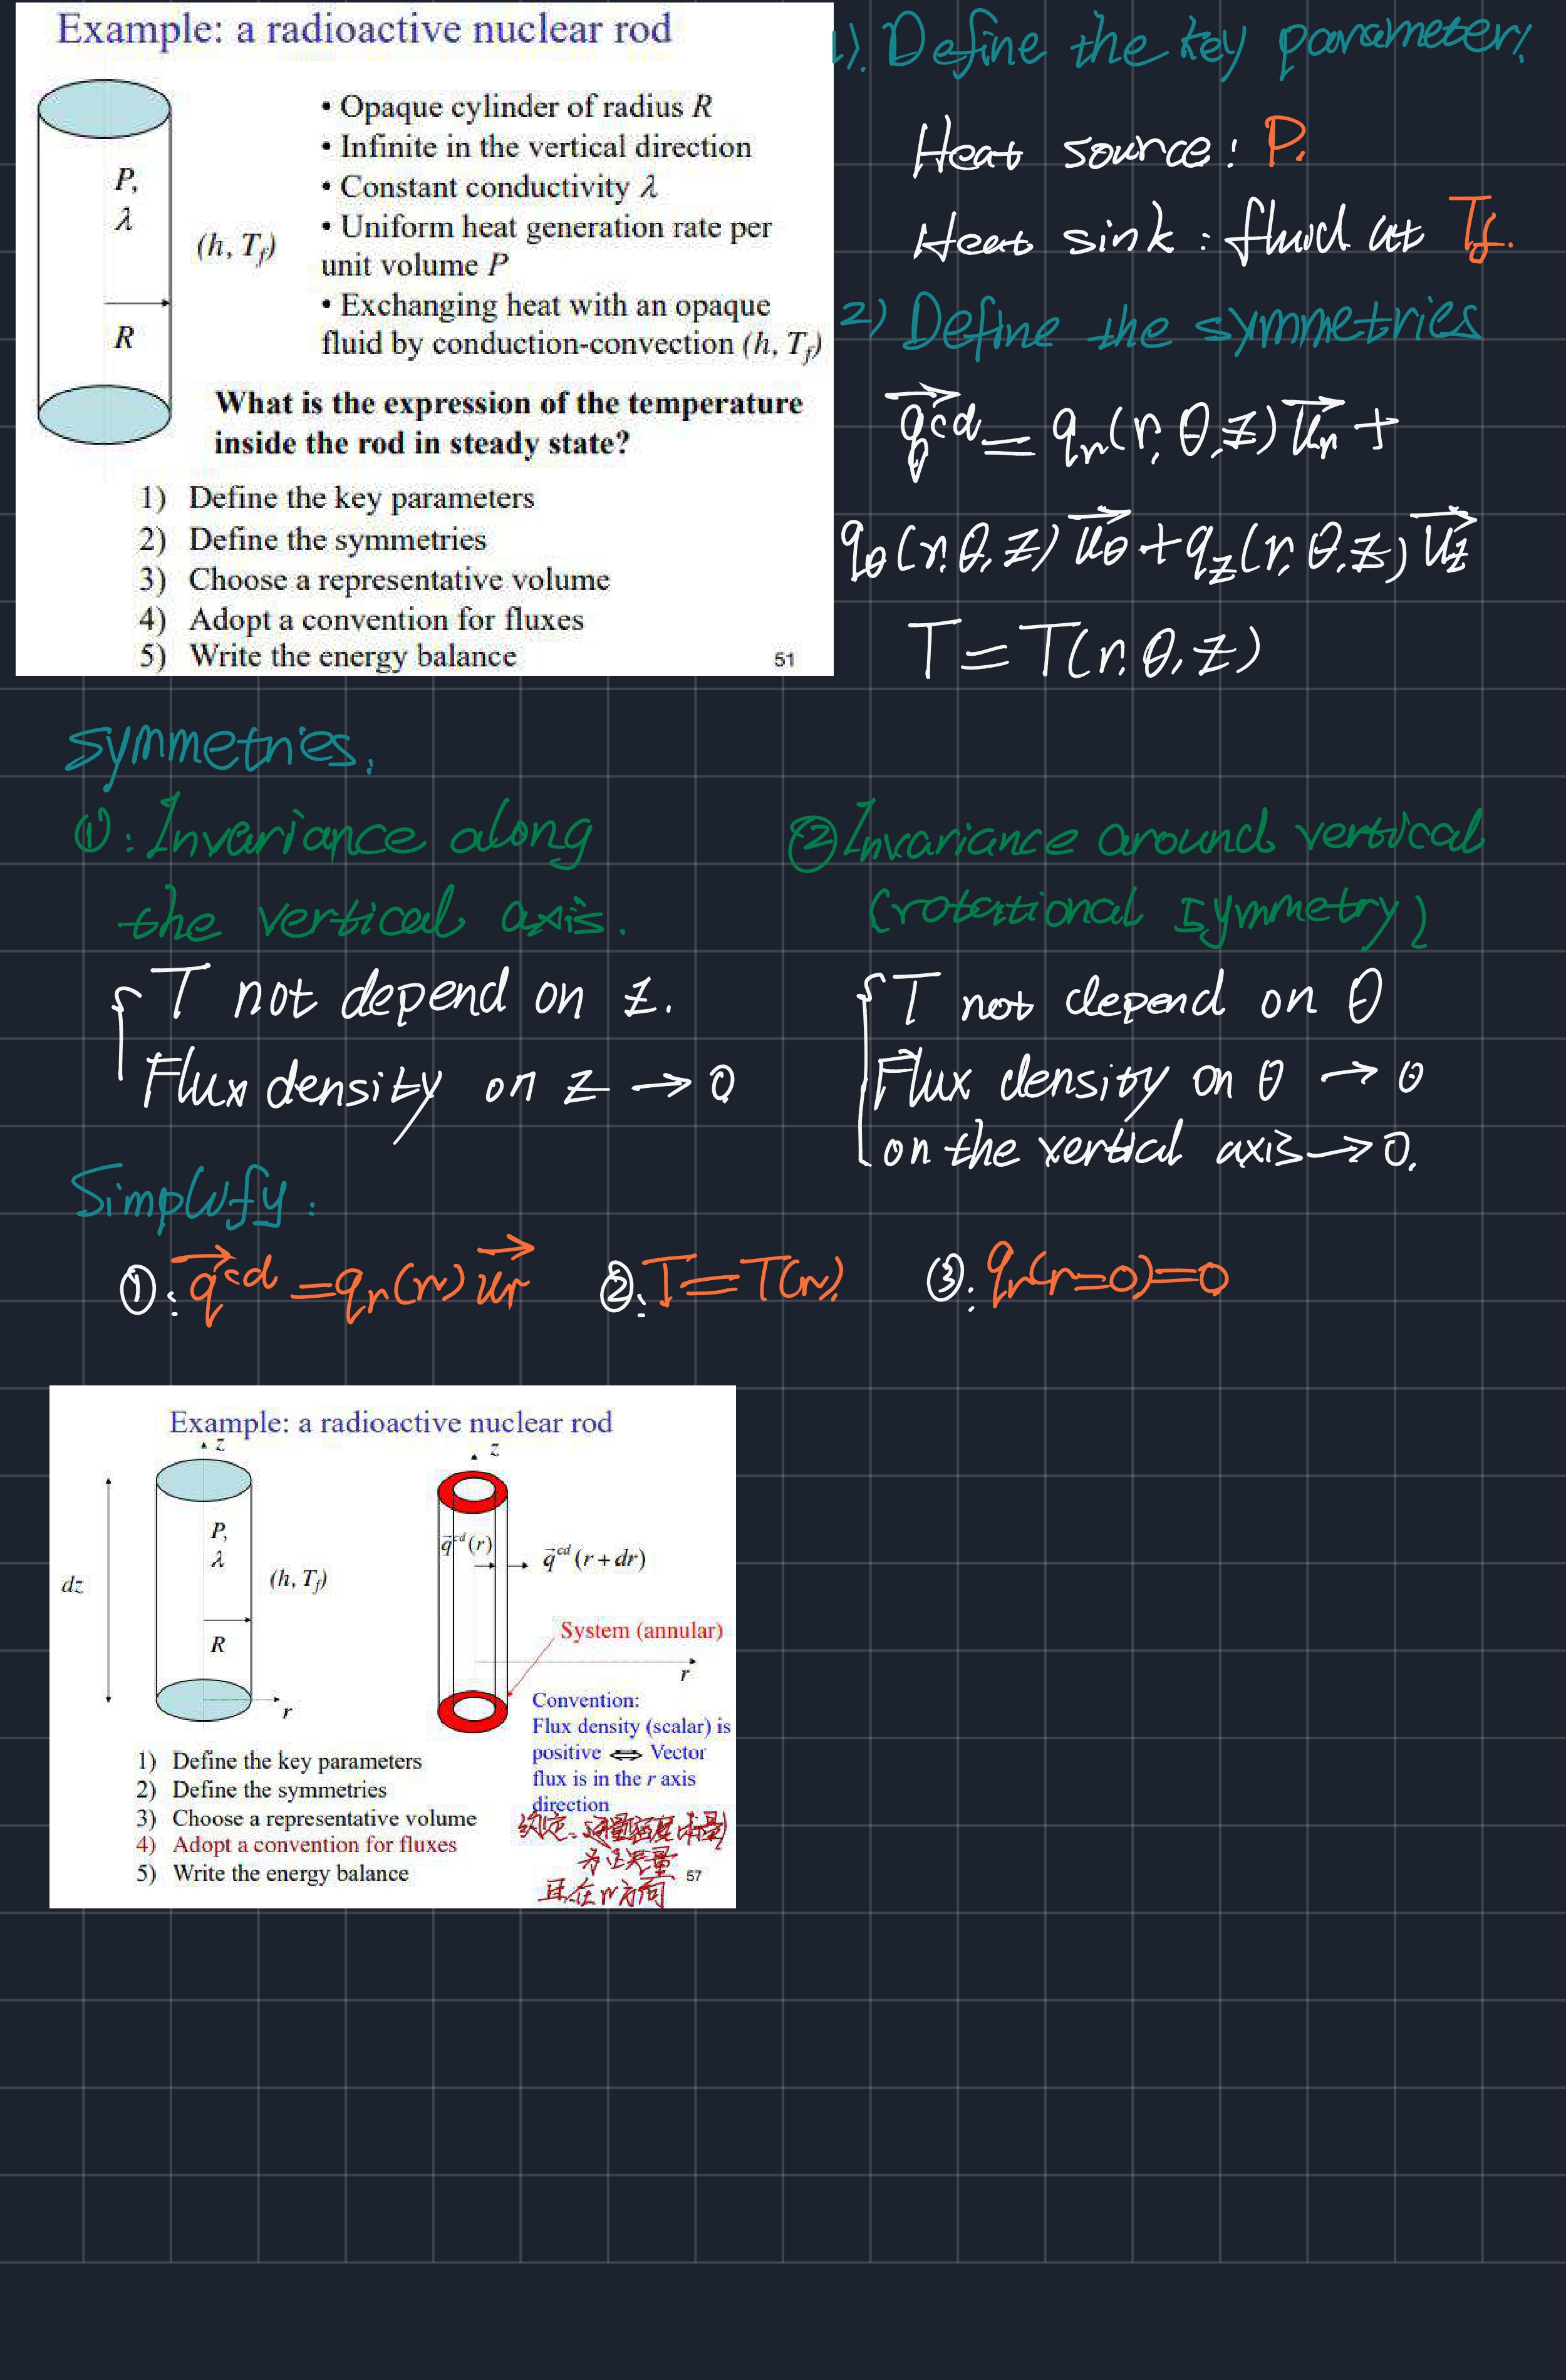 Example: a radioactive nuclear rod
P,
λ
(h, Tf)
R
• Opaque cylinder of radius R
• Infinite in the vertical direction
• Constant conductivity λ
• Uniform heat generation rate per
unit volume P
• Exchanging heat with an opaque
fluid by conduction-convection (h, Tf)
What is the expression of the temperature
inside the rod in steady state?
1) Define the key parameters
2) Define the symmetries
3) Choose a representative volume
4) Adopt a convention for fluxes
5) Write the energy balance
51
1). Define the key parameter.
Heat source: P.
Heat sink: fluid at Tf.
2) Define the symmetries
q⃗ᶜᵈ = qr(r,θ,z)u⃗r +
qθ(r,θ,z)u⃗θ + qz(r,θ,z)u⃗z
T = T(r,θ,z)
symmetries.
①: Invariance along
the vertical axis.
{ T not depend on z.
Flux density on z → 0
② Invariance around vertical
(rotational symmetry)
{ T not depend on θ
Flux density on θ → 0
on the vertical axis → 0.
Simplufy:
①: q⃗ᶜᵈ = qr(r)u⃗r ②: T = T(r) ③: qr(r=0)=0
Example: a radioactive nuclear rod
z
dz
P,
λ
(h, Tf)
R
r
z
q⃗ᶜᵈ(r)
q⃗ᶜᵈ(r+dr)
System (annular)
r
Convention:
Flux density (scalar) is
positive ⇔ Vector
flux is in the r axis
direction
约定:通量密度(标量)
为正矢量
且在r方向
1) Define the key parameters
2) Define the symmetries
3) Choose a representative volume
4) Adopt a convention for fluxes
5) Write the energy balance
57